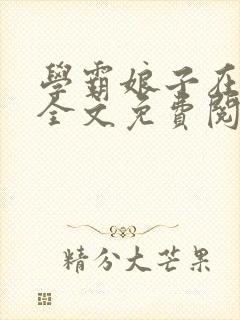 學霸娘子在
全文免費閱
精分大芒果